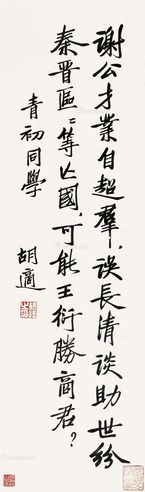 謝公才業自超羣，誤長清談助世紛。
秦晉區區等亡國，可能王衍勝商君？
青初同學
胡適